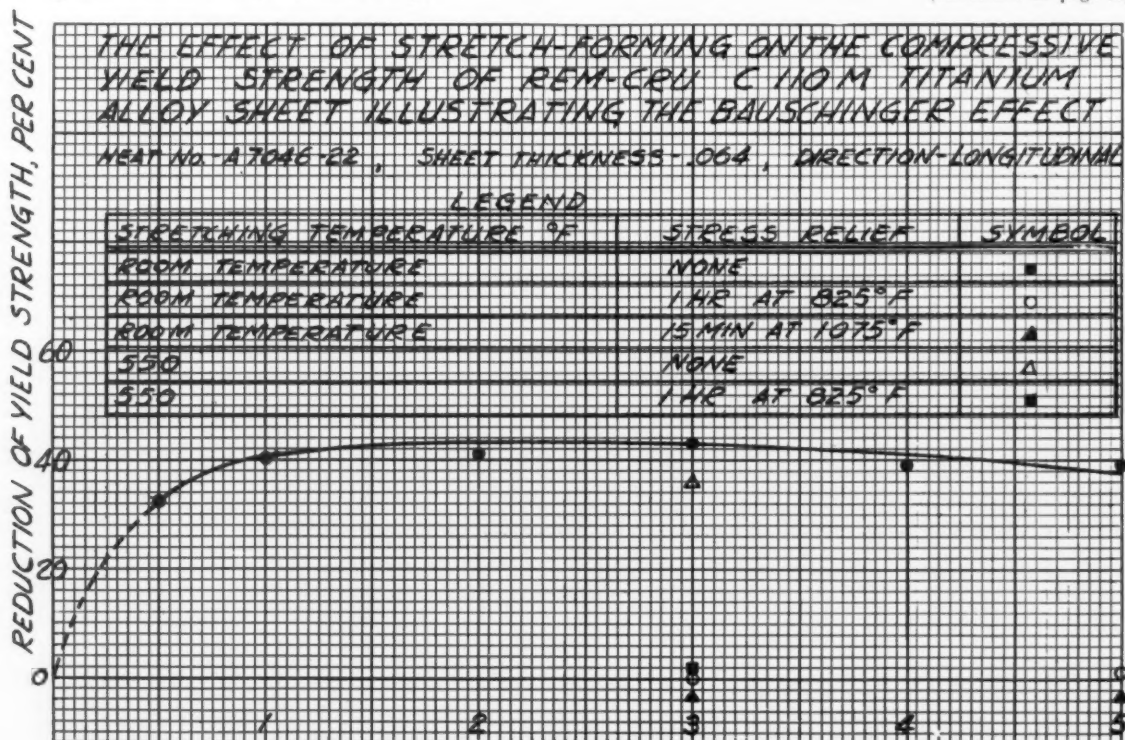 THE EFFECT OF STRETCH-FORMING ON THE COMPRESSIVE
YIELD STRENGTH OF REM-CRU C 110 M TITANIUM
ALLOY SHEET ILLUSTRATING THE BAUSCHINGER EFFECT
HEAT No.-A7046-22, SHEET THICKNESS-.064, DIRECTION-LONGITUDINAL
LEGEND
STRETCHING TEMPERATURE °F STRESS RELIEF SYMBOL
ROOM TEMPERATURE NONE
ROOM TEMPERATURE 1 HR AT 825°F
ROOM TEMPERATURE 15 MIN AT 1075°F
550 NONE
550 1 HR AT 825°F
REDUCTION OF YIELD STRENGTH, PER CENT
60
40
20
0
1 2 3 4 5